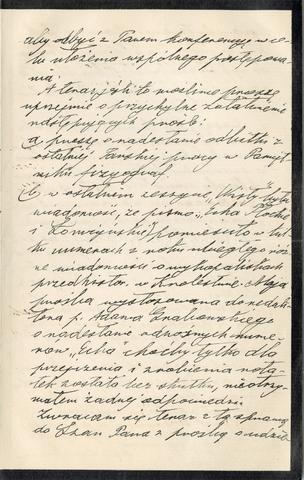 aby odbyć z Panem konferencyję w ce-
lu ułożenia wspólnego postępowa-
nia.
A teraz jeśli to możliwe proszę
uprzejmie o przychylne załatwienie
następujących próśb:
a, proszę o nadesłanie odbitki z
ostatniej Pańskiej pracy w Pamięt-
niku fizyograf.
b, w ostatnim zeszycie „Wisły" była
wiadomość, że pismo „Echa Płockie
i Łomżyńskie" pomieściło w kil-
ku numerach z roku ubiegłego róż-
ne wiadomości o wykopaliskach
przedhistor. w Królestwie. Moja
prośba wystosowana do redak-
tora p. Adama Grabowskiego
o nadesłanie odnośnych nume-
rów „Echa" choćby tylko dla
przejrzenia i zrobienia nota-
tek została bez skutku, nie otrzy-
małem żadnej odpowiedzi.
Zwracam się teraz z tą sprawą
do Szan Pana z prośbą o udzie-